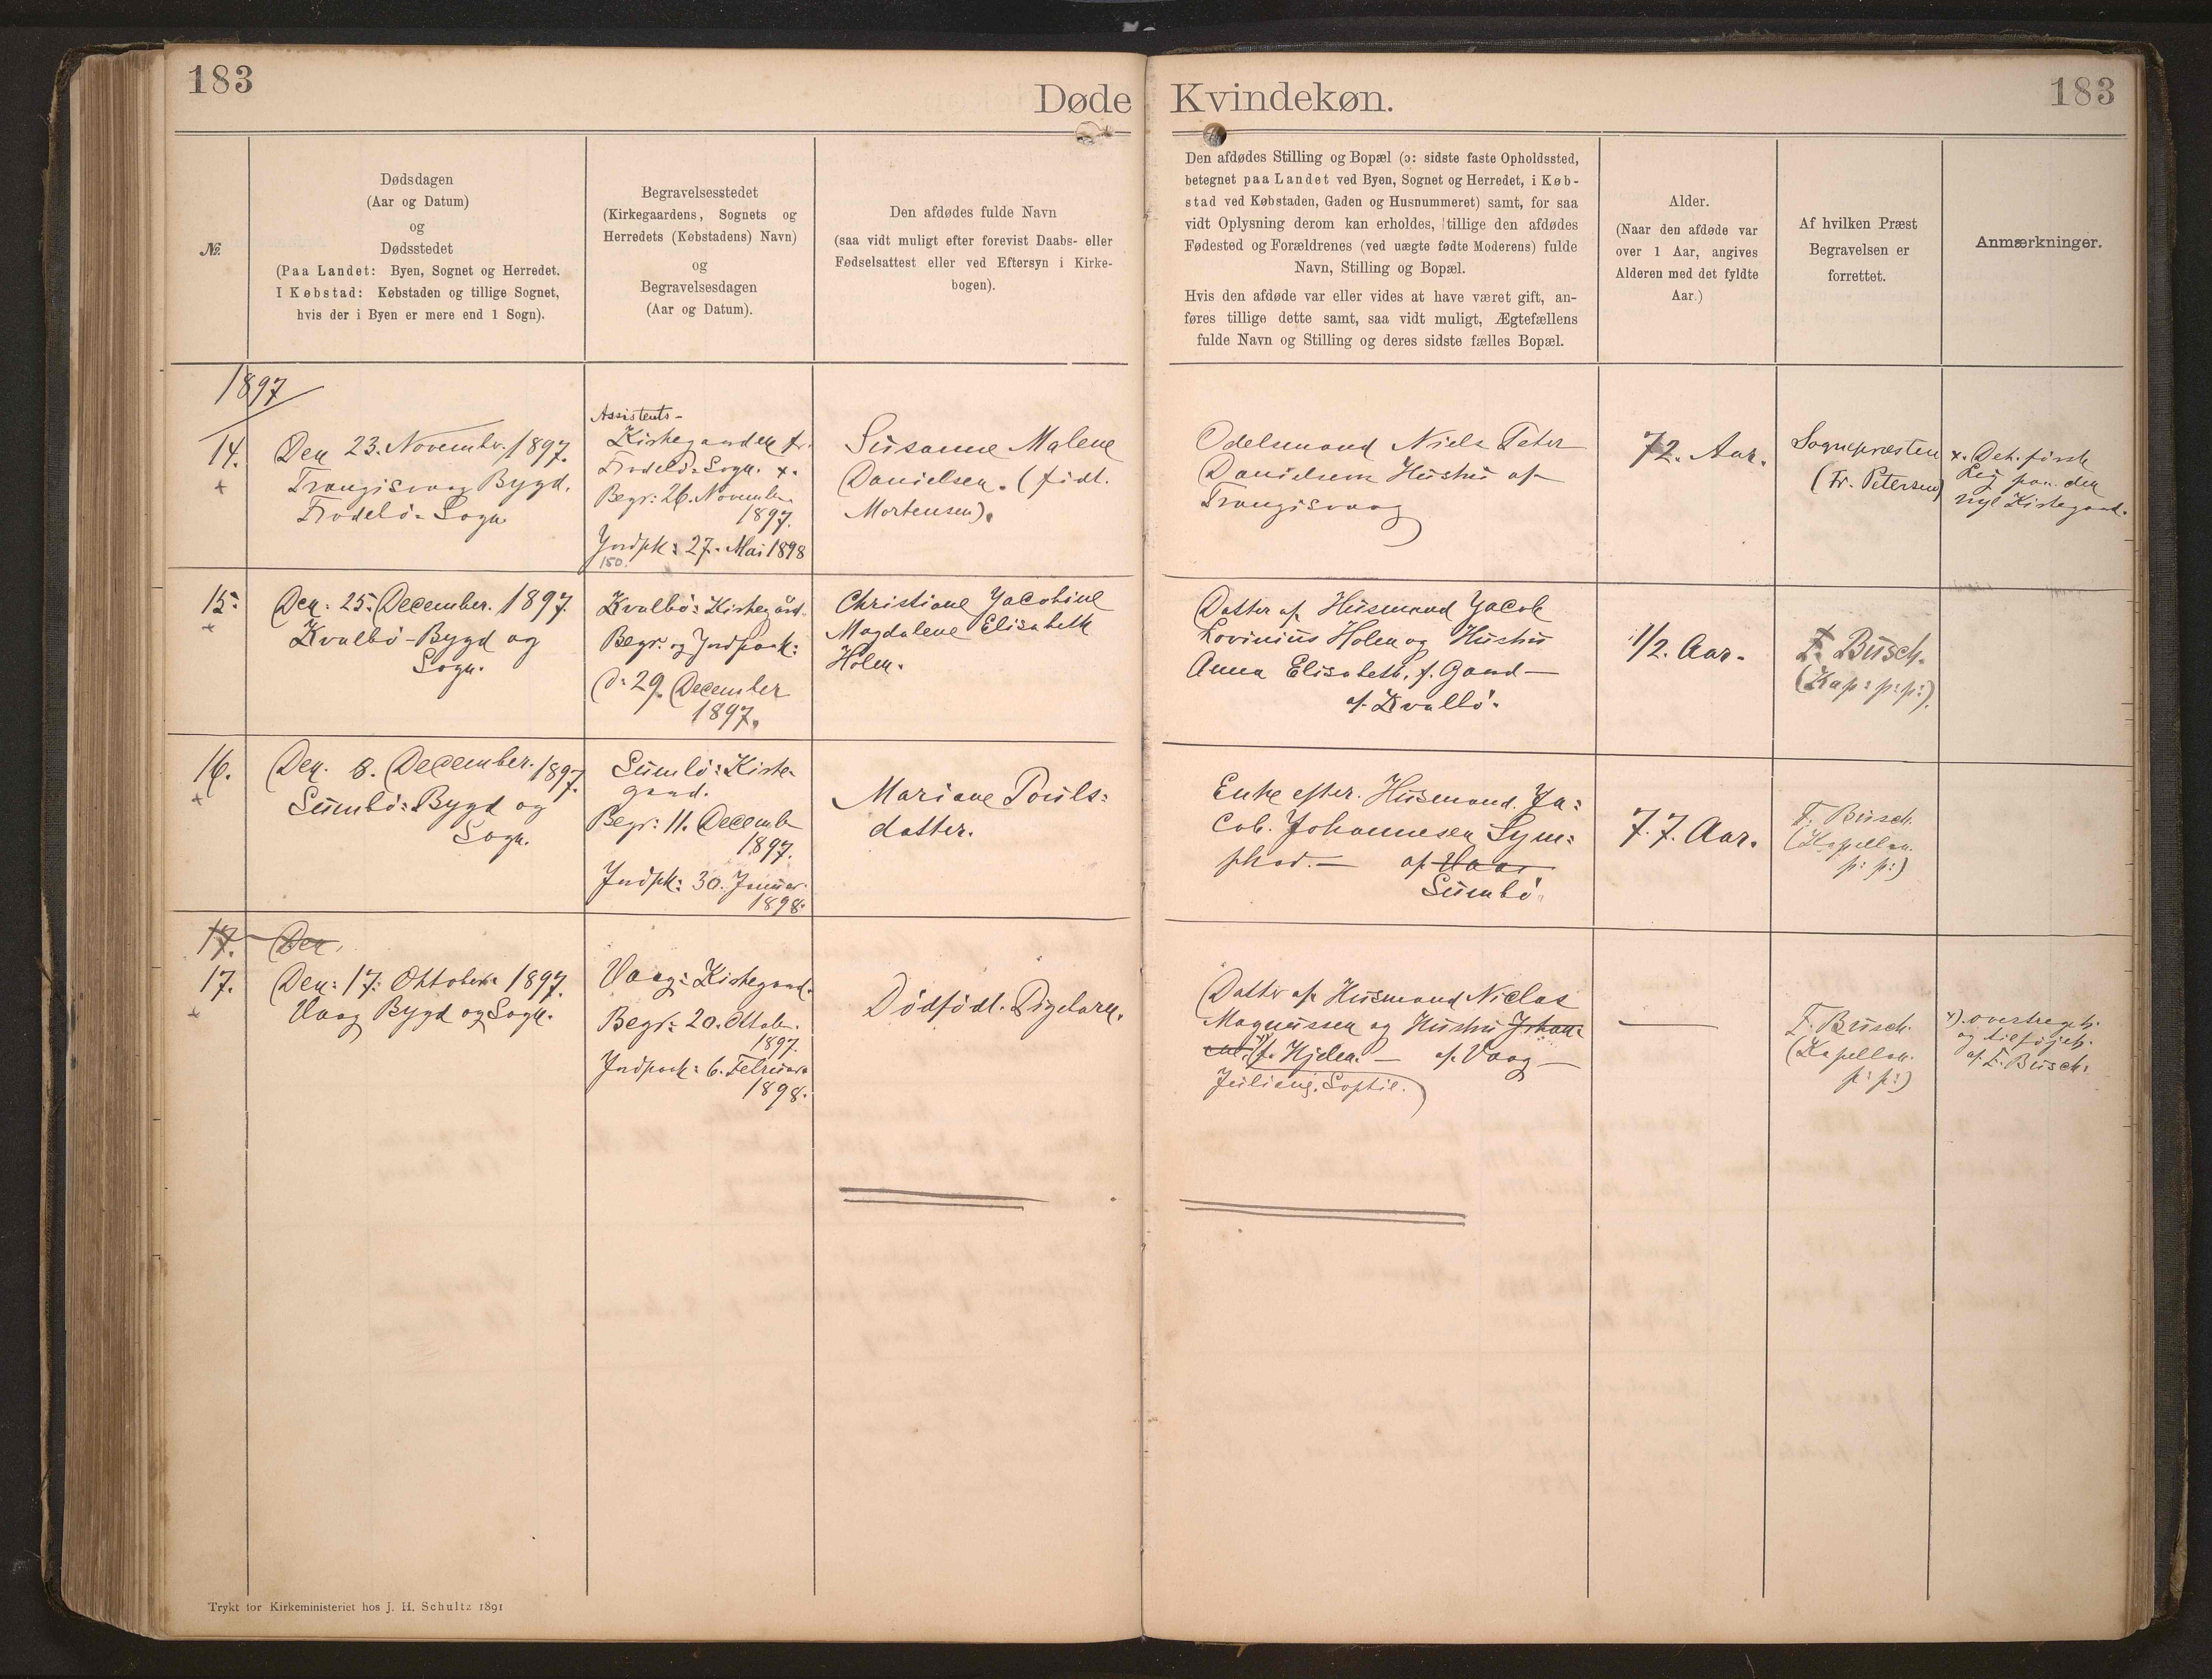 183
Døde Kvindekøn.
183
№
Dødsdagen
(Aar og Datum)
og
Dødsstedet
(Paa Landet: Byen, Sognet og Herredet.
I Købstad: Købstaden og tillige Sognet,
hvis der i Byen er mere end 1 Sogn).
Begravelsesstedet
(Kirkegaardens, Sognets og
Herredets (Købstadens) Navn)
og
Begravelsesdagen
(Aar og Datum).
Den afdødes fulde Navn
(saa vidt muligt efter forevist Daabs- eller
Fødselsattest eller ved Eftersyn i Kirke-
bogen).
Den afdødes Stilling og Bopæl (ɔ: sidste faste Opholdssted,
betegnet paa Landet ved Byen, Sognet og Herredet, i Køb-
stad ved Købstaden, Gaden og Husnummeret) samt, for saa
vidt Oplysning derom kan erholdes, tillige den afdødes
Fødested og Forældrenes (ved uægte fødte Moderens) fulde
Navn, Stilling og Bopæl.
Hvis den afdøde var eller vides at have været gift, an-
føres tillige dette samt, saa vidt muligt, Ægtefællens
fulde Navn og Stilling og deres sidste fælles Bopæl.
Alder.
(Naar den afdøde var
over 1 Aar, angives
Alderen med det fyldte
Aar.)
Af hvilken Præst
Begravelsen er
forrettet.
Anmærkninger.
1897
14.
+
Den 23. November. 1897.
Trangisvaag Bygd.
Frodebø- Sogn
Assistents-
Kirkegaarden f.
Frodebø- Sogn. x.
Begr: 26. November
1897.
Jordpk: 27. Mai 1898
150.
Susanne Malene
Danielsen. (født.
Mortensen).
Odelsmand Niels Peter
Danielsens Hustru af
Trangisvaag
72. Aar.
Sognepræsten
(Fr. Petersen)
x. Det første
Lig paa den
nye Kirkegaard.
15.
+
Den: 25: December. 1897.
Kvalbø- Bygd og
Sogn.
Kvalbø: Kirkegård.
Begr. og Jordpaak:
d: 29. December
1897.
Christiane Jacobine
Magdalene Elisabeth
Holm.
Datter af Husmand Jacob
Lovinius Holm og Hustru
Anna Elisabeth, f. Gaard -
af Kvalbø.
1/2. Aar.
F. Busch.
(Kap: p: p:).
16.
+
Den. 8. December. 1897.
Sumbø: Bygd og
Sogn.
Sumbø: Kirke-
gaard.
Begr: 11. December
1897.
Jordpk: 30. Januar.
1898.
Mariane Pouls:
datter.
Enke efter. Husmand. Ja:
cob. Johannesen Sym:
phod. - af Vaag
Sumbø.
77. Aar.
F. Busch.
(Kapellan.
p: p:)
17. Den
17.
+
Den: 17: Oktober. 1897.
Vaag Bygd og Sogn.
Vaag: Kirkegaard.
Begr: 20. Oktob.
1897.
Jordpaak: 6. Februar
1898.
Dødfødt. Pigebarn.
Datter af Husmand Niclas
Magnussen og Hustru Johan:
ne. x) f. Hjelm. - af. Vaag -
Juliane. Sophie.)
F. Busch.
(Kapellan.
p: p:)
x). overstreget.
og tilføjet.
af. F. Busch.
Trykt for Kirkeministeriet hos J. H. Schultz 1891